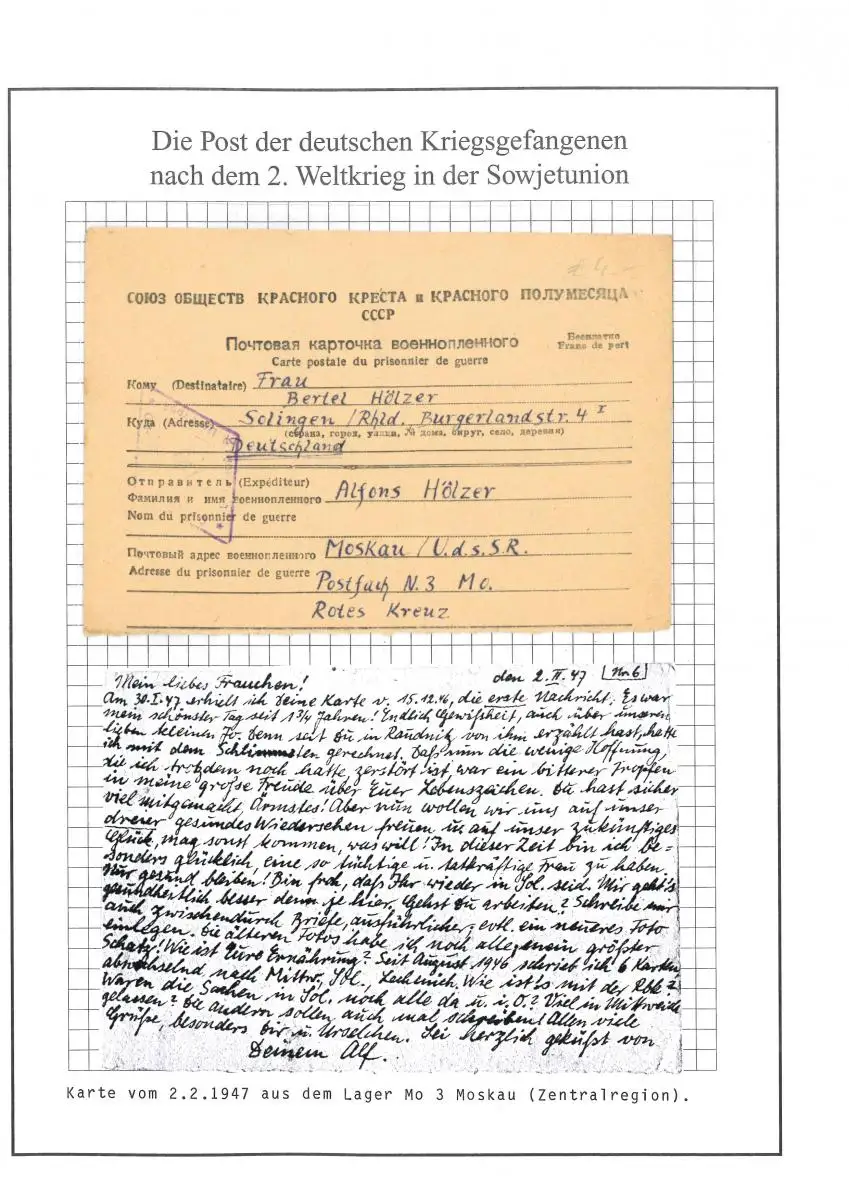 Die Post der deutschen Kriegsgefangenen
nach dem 2. Weltkrieg in der Sowjetunion
СОЮЗ ОБЩЕСТВ КРАСНОГО КРЕСТА и КРАСНОГО ПОЛУМЕСЯЦА
СССР
Почтовая карточка военнопленного
Бесплатно
Franc de port
Carte postale du prisonnier de guerre
Кому (Destinataire) Frau
Bertel Hölzer
Куда (Adresse) Solingen /Rhld. Burgerlandstr. 4 I
(страна, город, улица, № дома, округ, село, деревня)
Deutschland
Отправитель (Expéditeur)
Фамилия и имя военнопленного Alfons Hölzer
Nom du prisonnier de guerre
Почтовый адрес военнопленного Moskau / U.d.s.S.R.
Adresse du prisonnier de guerre Postfach N. 3 Mo.
Rotes Kreuz
Mein liebes Frauchen! den 2. II. 47 Nr. 6
Am 30.I.47 erhielt ich Deine Karte v. 15.12.46, die erste Nachricht. Es war
mein schönster Tag seit 1 3/4 Jahren! Endlich Gewißheit, auch über unseren
lieben kleinen Jo. Denn seit Du in Raudnik von ihm erzählt hast, hatte
ich mit dem Schlimmsten gerechnet. Daß nun die wenige Hoffnung,
die ich trotzdem noch hatte, zerstört ist war ein bitterer Tropfen
in meine große Freude über Euer Lebenszeichen. Du hast sicher
viel mitgemacht Ärmstes! Aber nun wollen wir uns auf unser
dreier gesundes Wiedersehen freuen u. auf unser zukünftiges
Glück, mag sonst kommen, was will! In dieser Zeit bin ich be-
sonders glücklich, eine so tüchtige u. tatkräftige Frau zu haben.
Nur gesund bleiben! Bin froh, daß Ihr wieder in Sol. seid. Mir geht's
gesundheitlich besser denn je hier. Gehst Du arbeiten? Schreibe mir
auch zwischendurch Briefe, ausführlicher, evtl. ein neueres Foto
einlegen. Die älteren Fotos habe ich noch alle, mein größter
Schatz! Wie ist Eure Ernährung? Seit August 1946 schrieb ich 6 Karten,
abwechselnd nach Mittw., Sol., Lechenich. Wie ist es mit der Rbk.?
Waren die Sachen in Sol. noch alle da u. i. O.? Viel in Mittweida
gelassen? Die andern sollen auch mal schreiben! Allen viele
Grüße, besonders Dir u. Urselchen. Sei herzlich geküßt von
Deinem Alf.
Karte vom 2.2.1947 aus dem Lager Mo 3 Moskau (Zentralregion).